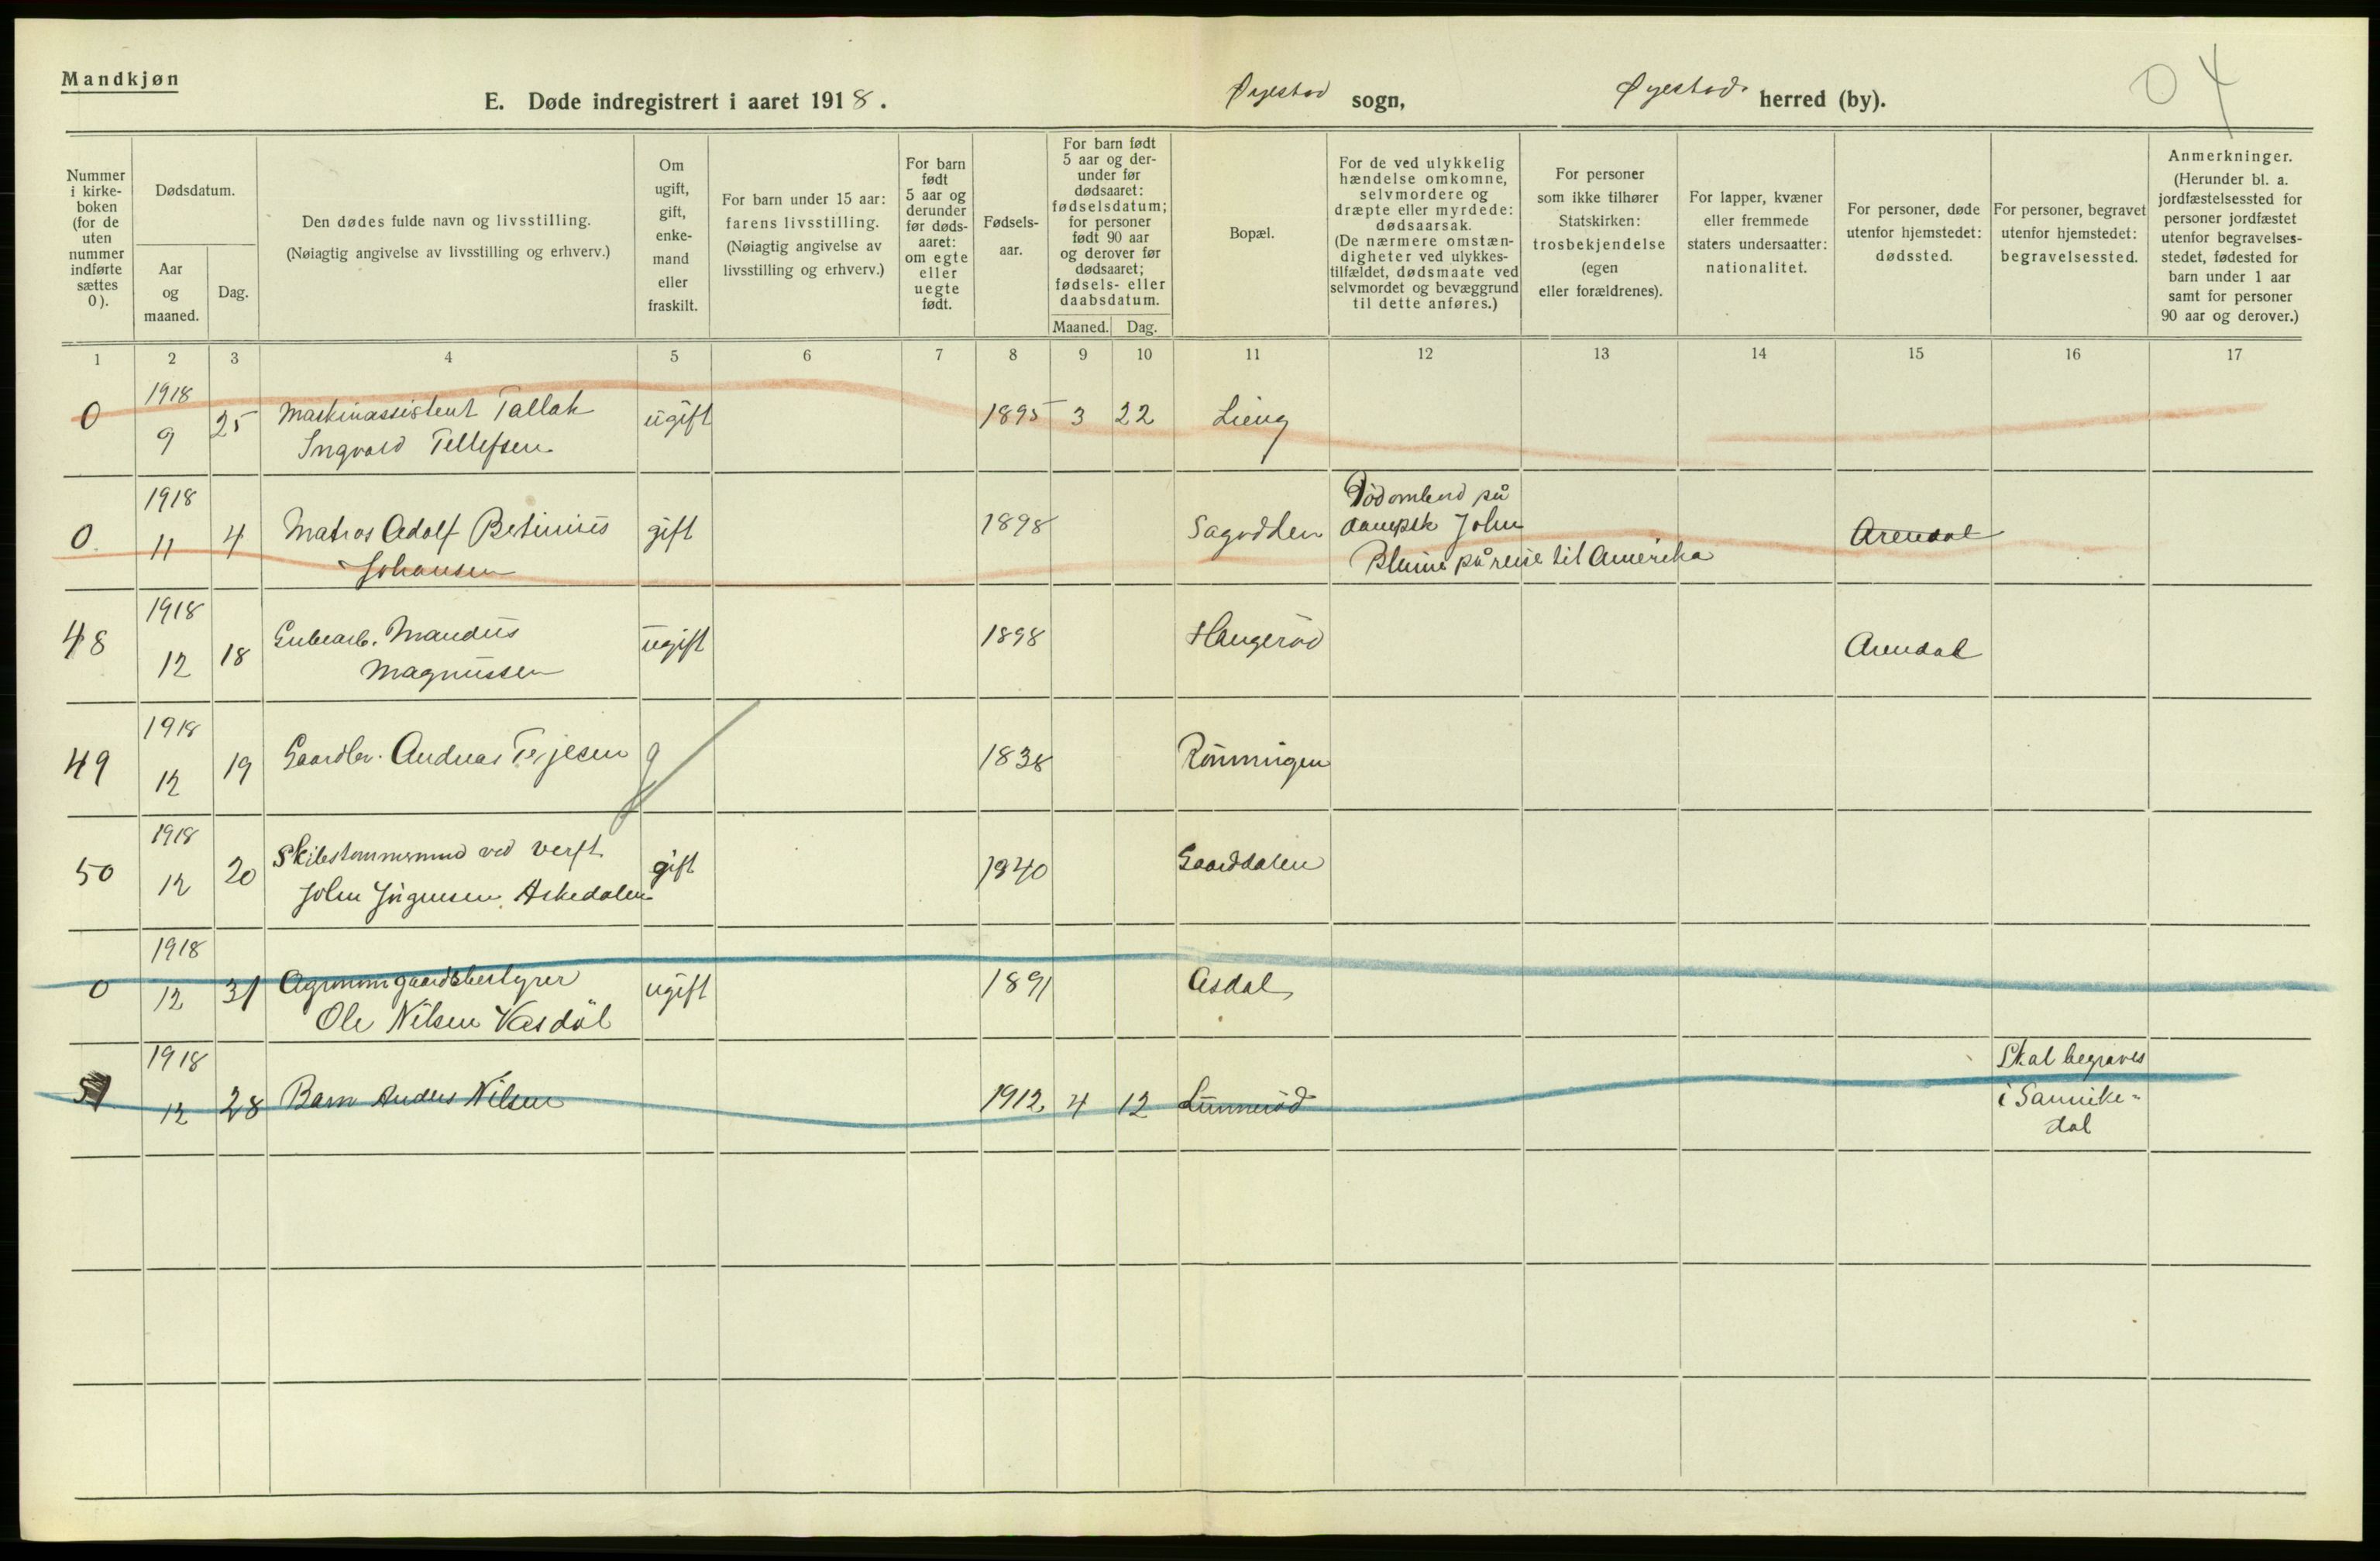 Mandkjøn
E. Døde indregistrert i aaret 1918.
Øyestad sogn,
Øyestad herred (by).
04
Nummer
i kirke-
boken
(for de
uten
nummer
indførte
sættes
0).
Dødsdatum.
Aar
og
maaned.
Dag.
Den dødes fulde navn og livsstilling.
(Nøiagtig angivelse av livsstilling og erhverv.)
Om
ugift,
gift,
enke-
mand
eller
fraskilt.
For barn under 15 aar:
farens livsstilling.
(Nøiagtig angivelse av
livsstilling og erhverv.)
For barn
født
5 aar og
derunder
før døds-
aaret:
om egte
eller
uegte
født.
Fødsels-
aar.
For barn født
5 aar og der-
under før
dødsaaret:
fødselsdatum;
for personer
født 90 aar
og derover før
dødsaaret;
fødsels- eller
daabsdatum.
Maaned. Dag.
Bopæl.
For de ved ulykkelig
hændelse omkomne,
selvmordere og
dræpte eller myrdede:
dødsaarsak.
(De nærmere omstæn-
digheter ved ulykkes-
tilfældet, dødsmaate ved
selvmordet og bevæggrund
til dette anføres.)
For personer
som ikke tilhører
Statskirken:
trosbekjendelse
(egen
eller forældrenes).
For lapper, kvæner
eller fremmede
staters undersaatter:
nationalitet.
For personer, døde
utenfor hjemstedet:
dødssted.
For personer, begravet
utenfor hjemstedet:
begravelsessted.
Anmerkninger.
(Herunder bl. a.
jordfæstelsessted for
personer jordfæstet
utenfor begravelses-
stedet, fødested for
barn under 1 aar
samt for personer
90 aar og derover.)
1 2 3 4 5 6 7 8 9 10 11 12 13 14 15 16 17
1918
0 9 25 Maskinassistent Tallak ugift 1895 3 22 Lieng
Ingvald Tellefsen
1918
0. 11 4 Matros Adolf Betinius gift 1898 Sagodden Död ombord på
dampsk John
Johansen Blume på reise til Amerika Arendal
1918
48 12 18 Grubearb. Mandus ugift 1898 Haugeröd Arendal
Magnussen
1918
49 12 19 Gaardbr. Andreas Terjesen g 1838 Rönningen
1918
50 12 20 Skibstømmermand ved verft gift 1840 Gaarddalen
John Jörgensen Askedalen
1918
0 12 31 Agronom gaardsbestyrer ugift 1891 Asdal
Ole Nilsen Vasdöl
1918
51 12 28 Barn Anders Nilsen 1912 4 12 Lunneröd Skal begraves
i Sannike-
dal